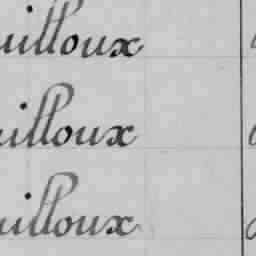 uilloux
uilloux
uilloux